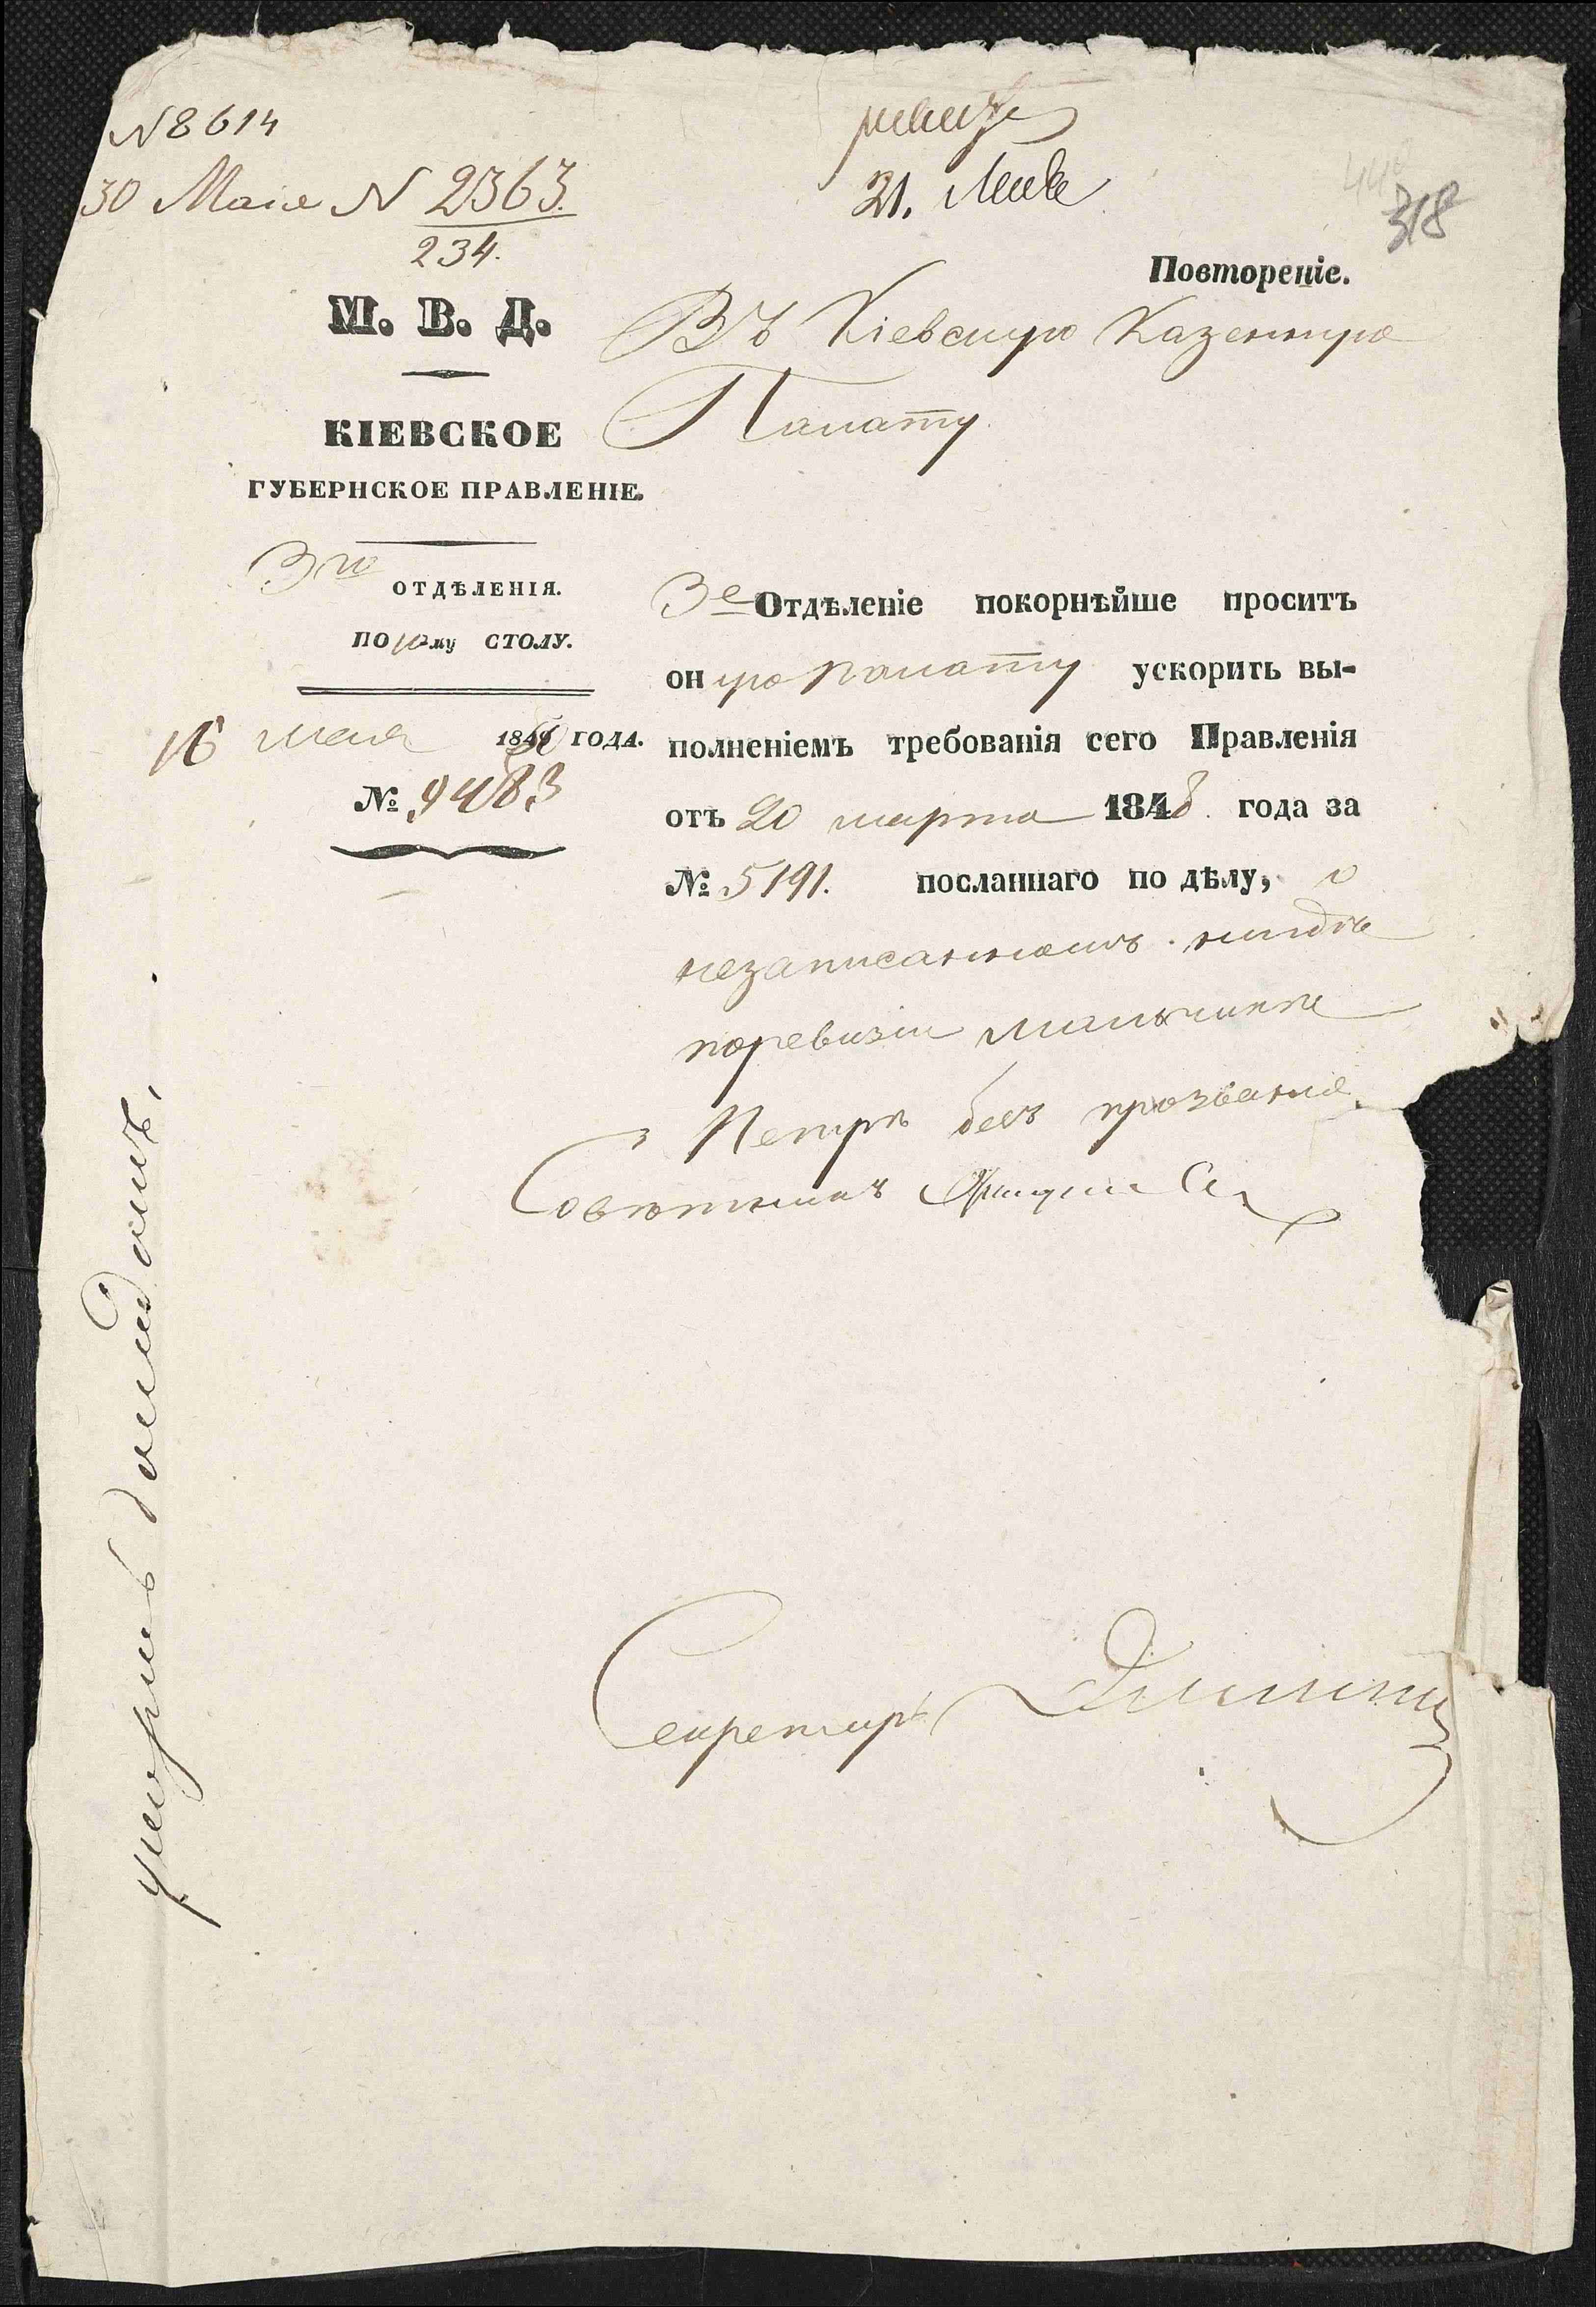 N 8614
30 Маія N 2363.
234.
21. Мая
318
Повтореніе.
М. В. Д.
КІЕВСКОЕ
ГУБЕРНСКОЕ ПРАВЛЕНІЕ.
3го ОТДѢЛЕНІЯ.
ПО му СТОЛУ.
16 мая 1850 ГОДА.
№ 9483
Въ Кіевскую Казенную
Палату
3е Отдѣленіе покорнѣйше проситъ
оную Палату ускорить вы-
полненіемъ требованія сего Правленія
отъ 20 марта 1848 года за
№ 5191. посланнаго по дѣлу, о
незаписанномъ нигдѣ
поревизіи мальчикѣ
Петрѣ безъ прозванія
Совѣтникъ
Секретарь